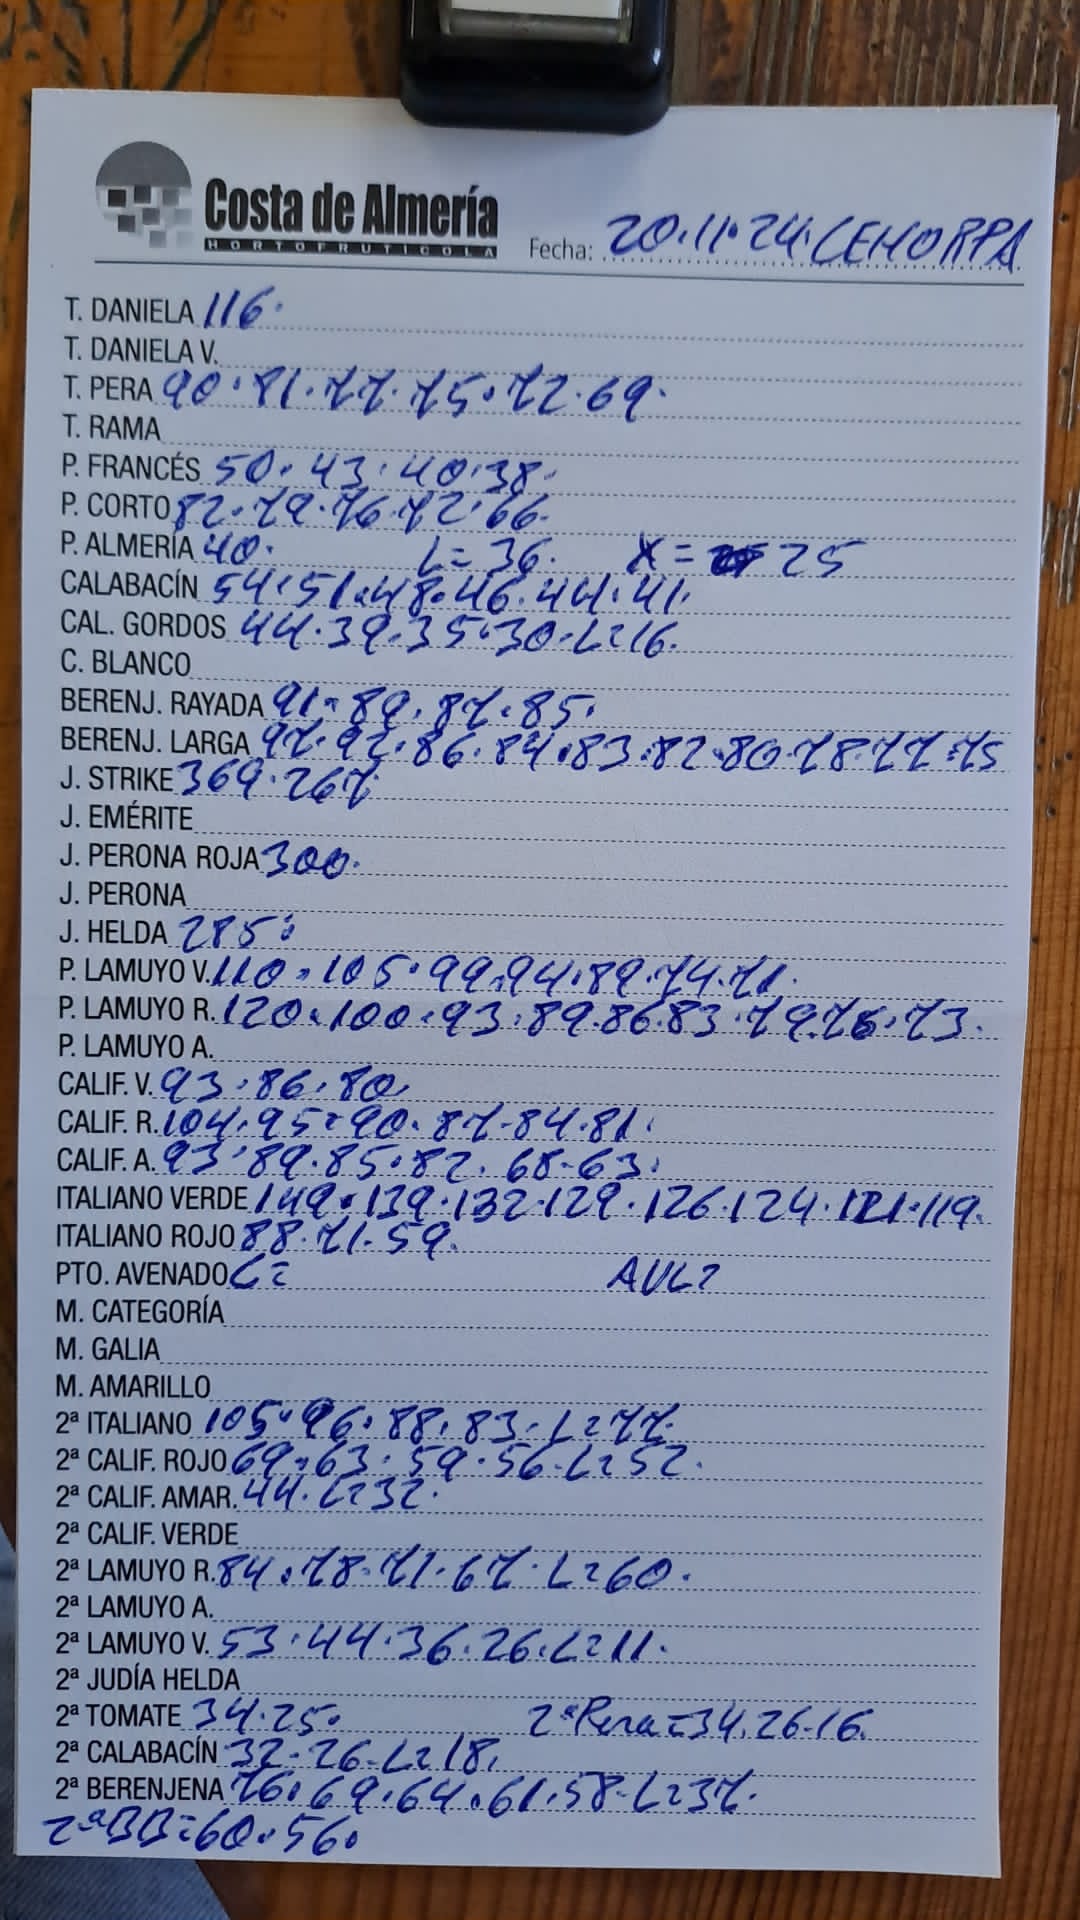 Costa de Almería
HORTOFRUTICOLA
Fecha: 20.11.24. CEHORPA
T. DANIELA 116.
T. DANIELA V.
T. PERA 90.81.77.75.72.69.
T. RAMA
P. FRANCÉS 50.43.40.38.
P. CORTO 82.79.76.72.66.
P. ALMERÍA 40. L=36. X= 25
CALABACÍN 54.51.48.46.44.41.
CAL. GORDOS 44.39.35.30.L=16.
C. BLANCO
BERENJ. RAYADA 91.89.87.85.
BERENJ. LARGA 97.92.86.84.83.82.80.78.77.75
J. STRIKE 369.267
J. EMÉRITE
J. PERONA ROJA 300.
J. PERONA
J. HELDA 285.
P. LAMUYO V. 110.105.99.94.89.74.71.
P. LAMUYO R. 120.100.93.89.86.83.79.76.73.
P. LAMUYO A.
CALIF. V. 93.86.80.
CALIF. R. 104.95.90.87.84.81.
CALIF. A. 93.89.85.82.68.63.
ITALIANO VERDE 149.139.132.129.126.124.121.119.
ITALIANO ROJO 88.71.59.
PTO. AVENADO L= AVL=
M. CATEGORÍA
M. GALIA
M. AMARILLO
2ª ITALIANO 105.96.88.83.L=77.
2ª CALIF. ROJO 69.63.59.56.L=52.
2ª CALIF. AMAR. 44.L=32.
2ª CALIF. VERDE
2ª LAMUYO R. 84.78.71.67.L=60.
2ª LAMUYO A.
2ª LAMUYO V. 53.44.36.26.L=11.
2ª JUDÍA HELDA
2ª TOMATE 34.25. 2ªPera=34.26.16.
2ª CALABACÍN 32.26.L=18.
2ª BERENJENA 76.69.64.61.58.L=37.
2ªBB=60.56.